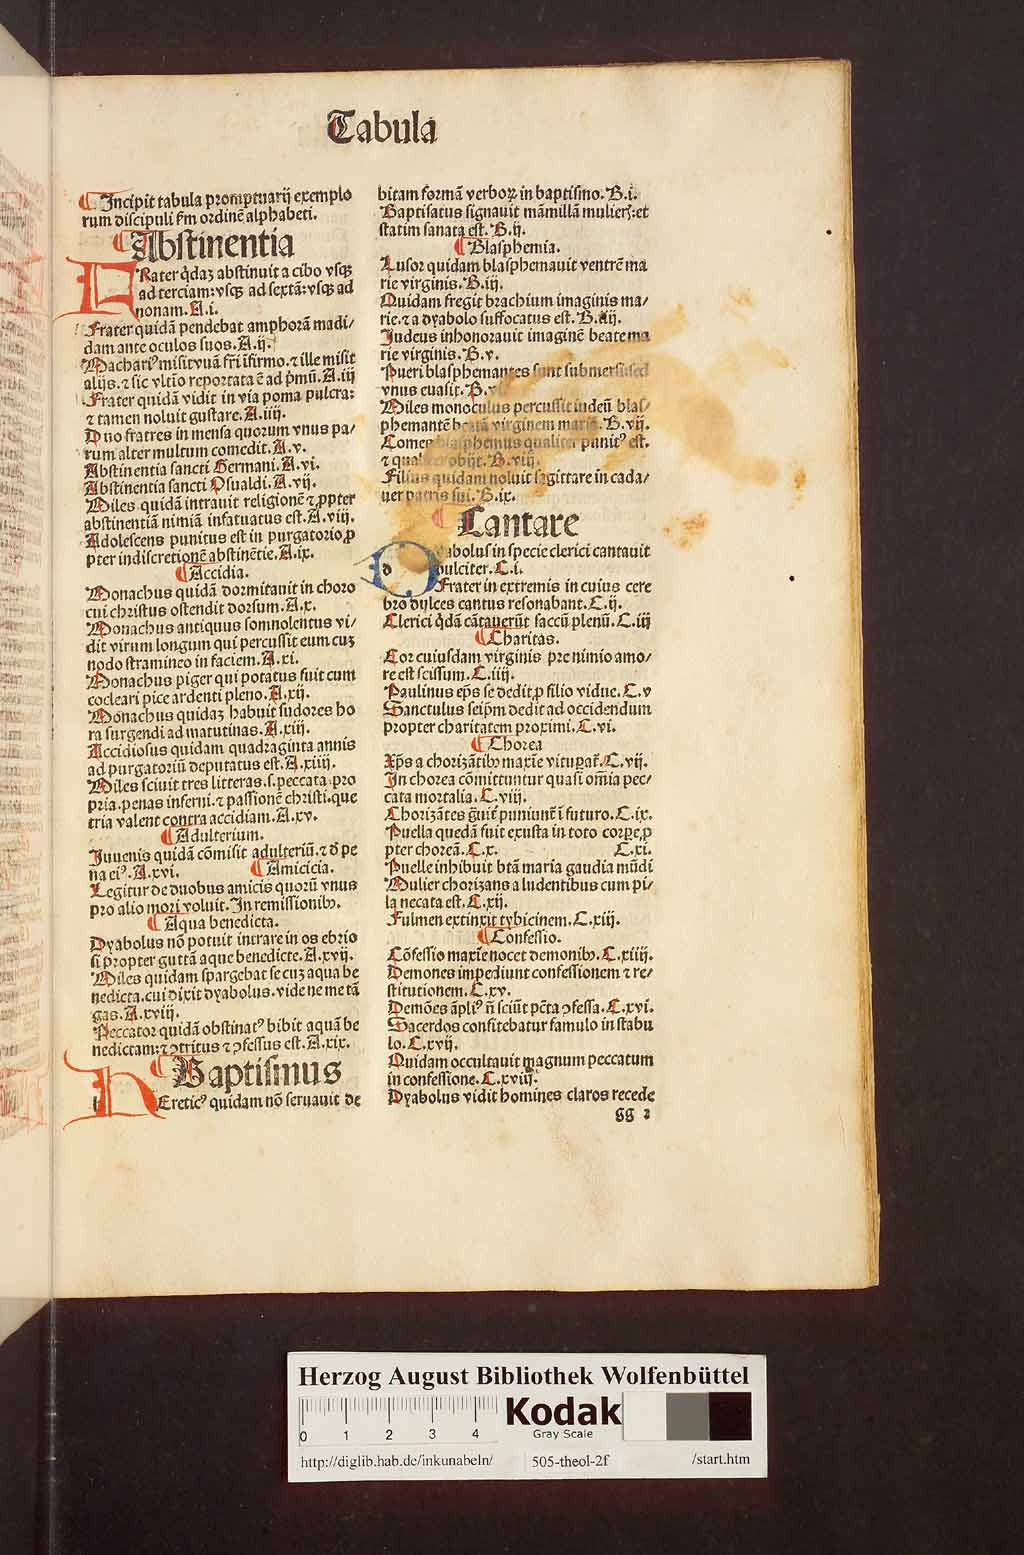 Tabula
¶ Incipit tabula promptuarij exemplo
rum discipuli ẜm ordinē alphabeti.
¶ Abstinentia
Rater q̄daꝫ abstinuit a cibo vsqꝫ
ad terciam: vsqꝫ ad sextā: vsqꝫ ad
nonam. A.i.
Frater quidā pendebat amphorā madi/
dam ante oculos suos. A.ij.
Macharꝰ misit vuā fr̄i īfirmo. ⁊ ille misit
alijs. ⁊ sic vltio reportata ē ad p̄mū. A.iij
Frater quidā vidit in via poma pulcra:
⁊ tamen noluit gustare. A.iiij.
Duo fratres in mensa quorum vnus pa/
rum alter multum comedit. A.v.
Abstinentia sancti Germani. A.vi.
Abstinentia sancti Osualdi. A.vij.
Miles quidā intrauit religionē ⁊ ꝓpter
abstinentiā nimiā infatuatus est. A.viij.
Adolescens punitus est in purgatorio ꝓ
pter indiscretionē abstinētie. A.ix.
¶ Accidia.
Monachus quidā dormitauit in choro
cui christus ostendit dorsum. A.x.
Monachus antiquus somnolentus vi/
dit virum longum qui percussit eum cuꝫ
nodo stramineo in faciem. A.xi.
Monachus piger qui potatus fuit cum
cocleari pice ardenti pleno. A.xij.
Monachus quidaꝫ habuit sudores ho
ra surgendi ad matutinas. A.xiij.
Accidiosus quidam quadraginta annis
ad purgatoriū deputatus est. A.xiiij.
Miles sciuit tres litteras. s. peccata pro
pria. penas inferni. ⁊ passionē christi. que
tria valent contra accidiam. A.xv.
¶ Adulterium.
Juuenis quidā cōmisit adulteriū. ⁊ d̄ pe
na eiꝰ. A.xvi. ¶ Amicicia.
Legitur de duobus amicis quorū vnus
pro alio mori voluit. In remissionibꝫ.
¶ Aqua benedicta.
Dyabolus nō potuit intrare in os ebrio
si propter guttā aque benedicte. A.xvij.
Miles quidam spargebat se cuꝫ aqua be
nedicta. cui dixit dyabolus. vide ne me tā
gas. A.xviij.
Peccator quidā obstinatꝰ bibit aquā be
nedictam: ⁊ ꝯtritus ⁊ ꝯfessus est. A.xix.
¶ Baptismus
h Ereticꝰ quidam nō seruauit de
bitam formā verboꝝ in baptismo. B.i.
Baptisatus signauit māmillā mulierꝭ: et
statim sanata est. B.ij.
¶ Blasphemia.
Lusor quidam blasphemauit ventrē ma
rie virginis. B.iij.
Quidam fregit brachium imaginis ma/
rie. ⁊ a dyabolo suffocatus est. B.iiij.
Judeus inhonorauit imaginē beate ma
rie virginis. B.v.
Pueri blasphemantes sunt submersi: sed
vnus euasit. B.vi.
Miles monoculus percussit iudeū blas/
phemantē beatā virginem mariā. B.vij.
Comes blasphemus qualiter punitꝰ est.
⁊ qualiter obijt. B.viij.
Filius quidam noluit sagittare in cada/
uer patris sui. B.ix.
¶ Cantare
d yabolus in specie clerici cantauit
dulciter. C.i.
Frater in extremis in cuius cere
bro dulces cantus resonabant. C.ij.
Clerici q̄dā cātauerūt saccū plenū. C.iij
¶ Charitas.
Cor cuiusdam virginis pre nimio amo/
re est scissum. C.iiij.
Paulinus ep̄s se dedit ꝓ filio vidue. C.v
Sanctulus seip̄m dedit ad occidendum
propter charitatem proximi. C.vi.
¶ Chorea
Xp̄s a chorizātibꝫ maxīe vituꝑat̄. C.vij.
In chorea cōmittuntur quasi om̄ia pec/
cata mortalia. C.viij.
Chorizātes g̈uit̄ puniunt̄ ī futuro. C.ix.
Puella quedā fuit exusta in toto corꝑe ꝓ
pter choreā. C.x. C.xi.
Puelle inhibuit btā maria gaudia mūdi
Mulier chorizans a ludentibus cum pi/
la necata est. C.xij.
Fulmen extinxit tybicinem. C.xiij.
¶ Confessio.
Cōfessio maxīe nocet demonibꝫ. C.xiiij.
Demones impediunt confessionem ⁊ re/
stitutionem. C.xv.
Demōes āpliꝰ n̄ sciūt pctā ꝯfessa. C.xvi.
Sacerdos confitebatur famulo in stabu
lo. C.xvij.
Quidam occultauit magnum peccatum
in confessione. C.xviij.
Dyabolus vidit homines claros recede
GG 2
Herzog August Bibliothek Wolfenbüttel
0 1 2 3 4
Kodak
Gray Scale
http://diglib.hab.de/inkunabeln/ 505-theol-2f /start.htm